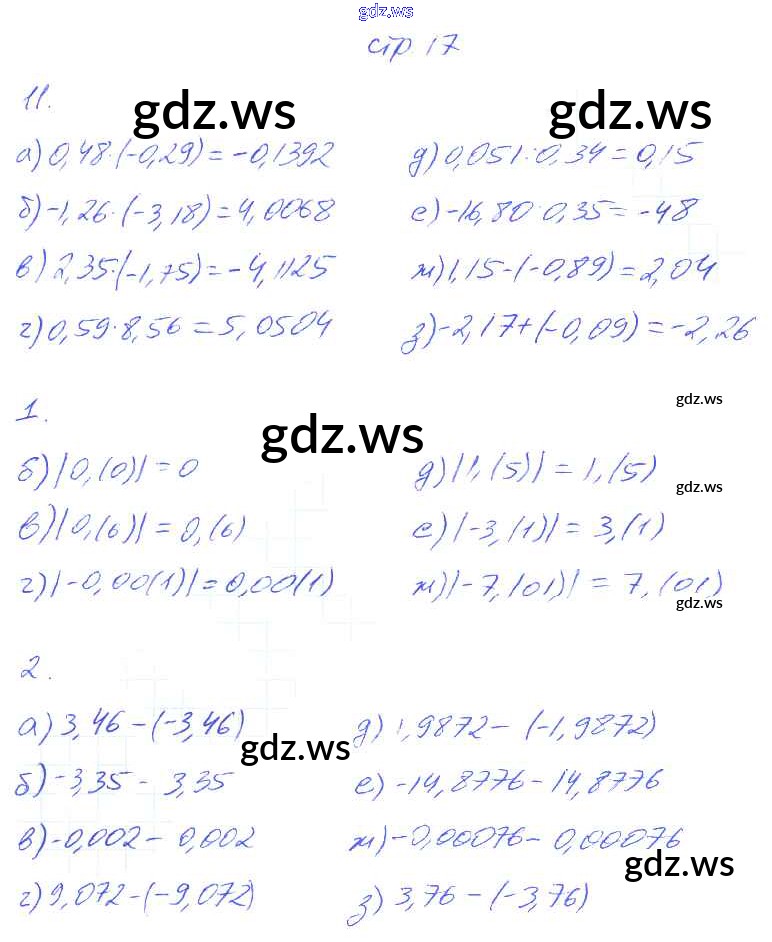 gdz.ws
стр 17
11.
gdz.ws gdz.ws
а) 0,48·(-0,29) = -0,1392
д) 0,051:0,34 = 0,15
б) -1,26·(-3,18) = 4,0068
е) -16,80:0,35 = -48
в) 2,35·(-1,75) = -4,1125
ж) 1,15-(-0,89) = 2,04
г) 0,59·8,56 = 5,0504
з) -2,17+(-0,09) = -2,26
1.
gdz.ws
gdz.ws
б) |0,(0)| = 0
д) |1,(5)| = 1,(5)
gdz.ws
в) |0,(6)| = 0,(6)
е) |-3,(1)| = 3,(1)
г) |-0,00(1)| = 0,00(1)
ж) |-7,(01)| = 7,(01)
gdz.ws
2.
а) 3,46 - (-3,46)
д) 1,9872 - (-1,9872)
gdz.ws
б) -3,35 - 3,35
е) -14,8776 - 14,8776
в) -0,002 - 0,002
ж) -0,00076 - 0,00076
gdz.ws
г) 9,072 - (-9,072)
з) 3,76 - (-3,76)